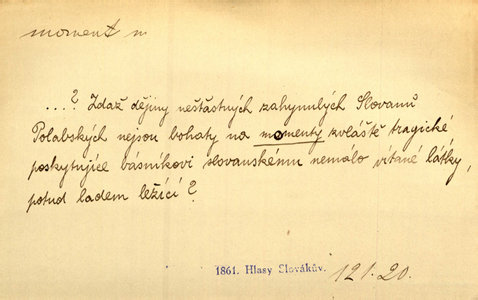 moment m
...? Zdaž dějiny nešťastných zahynulých Slovanů
Polabských nejsou bohaty na momenty zvláště tragické
poskytujíce básníkovi slovanskému nemálo vítané látky,
potud ladem ležící?
1861. Hlasy Slovákův. 121.20.